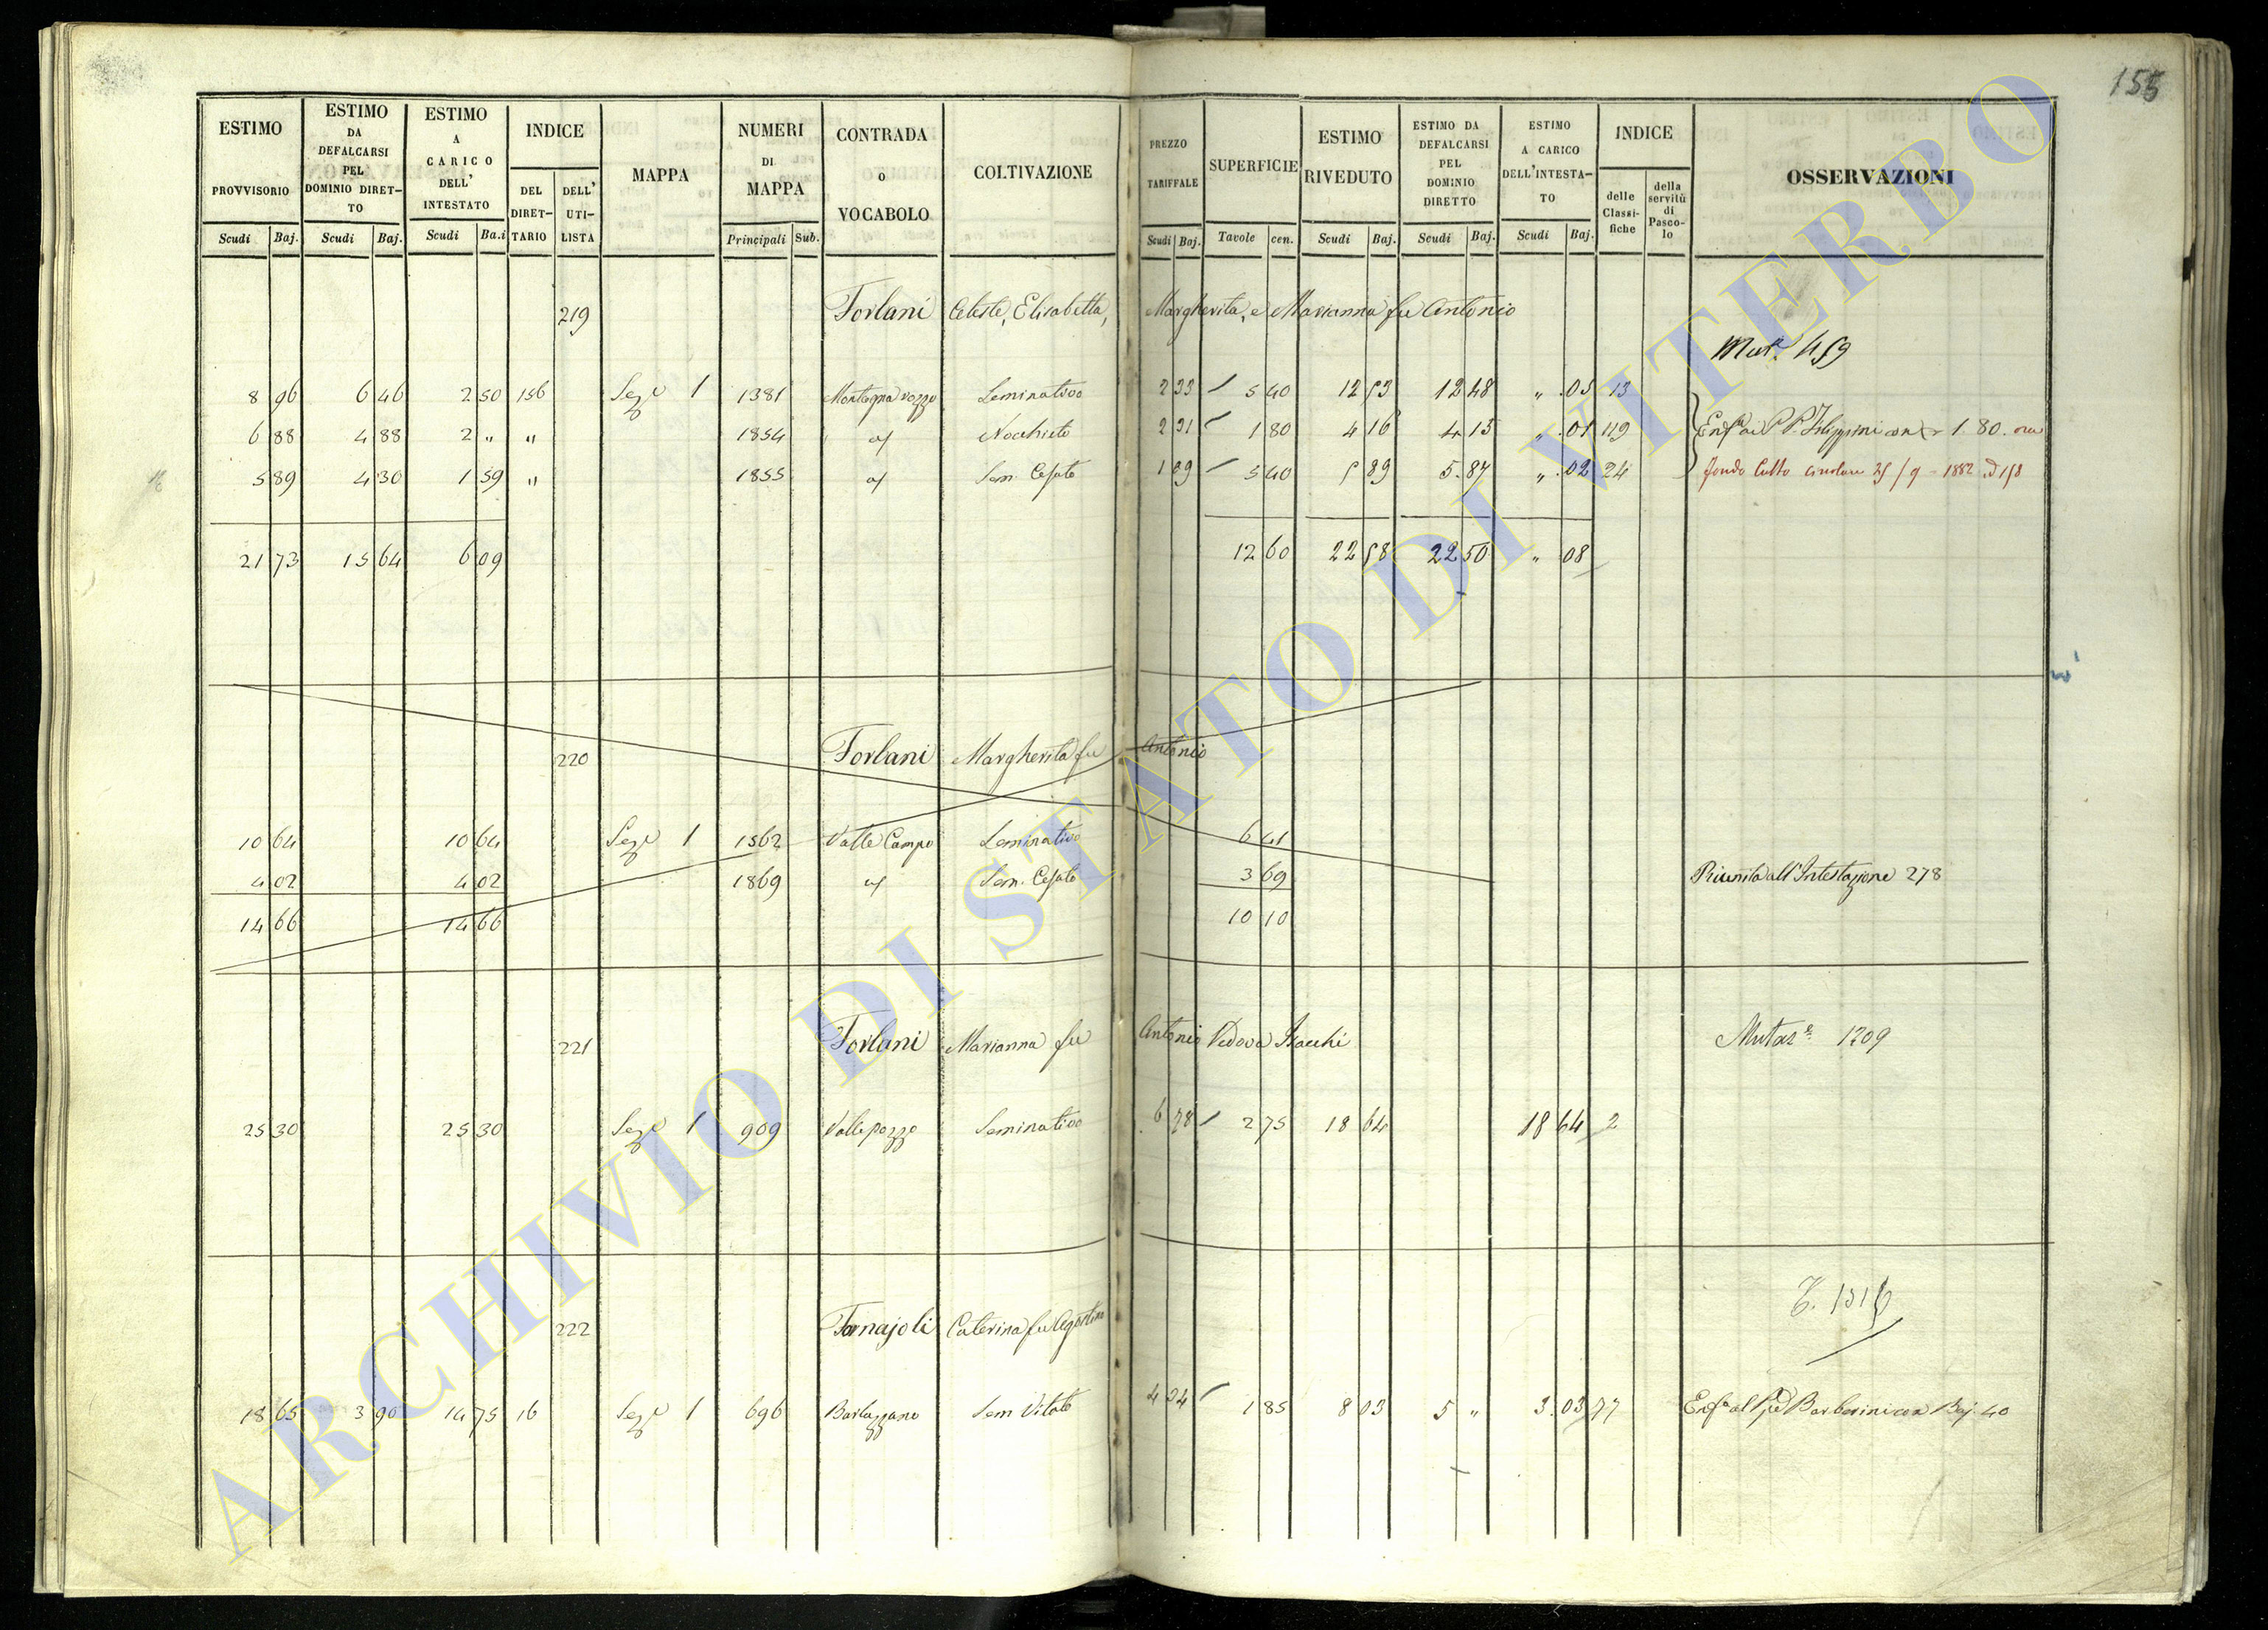 155
ESTIMO PROVVISORIO
ESTIMO DA DEFALCARSI PEL DOMINIO DIRET-TO
ESTIMO A CARICO DELL' INTESTATO
INDICE
DEL DIRET-TARIO
DELL' UTI-LISTA
MAPPA
NUMERI DI MAPPA
CONTRADA o VOCABOLO
COLTIVAZIONE
PREZZO TARIFFALE
SUPERFICIE
ESTIMO RIVEDUTO
ESTIMO DA DEFALCARSI PEL DOMINIO DIRETTO
ESTIMO A CARICO DELL'INTESTA-TO
INDICE
delle Classi-fiche
della servitù di Pasco-lo
OSSERVAZIONI
Scudi Baj. Scudi Baj. Scudi Ba.i Principali Sub. Scudi Baj. Tavole cen. Scudi Baj. Scudi Baj. Scudi Baj.
219 Forlani Celeste, Elisabetta, Margherita, e Marianna fu Antonio
459
8 96 6 46 2 50 156 Sez.e 1 1381 Seminativo 2 33 5 40 12 53 12 48 " .05 13
6 88 4 88 2 " " 1854 Nocchieto 2 31 1 80 4 16 4 15 " .01 119 Enf. ai P P. Filippini 1.80.
5 89 4 30 1 59 " 1855 Sem. Cesato 1 09 5 40 5 89 5.87 " .02 24 fondo Culto 1882
21 73 15 64 6 09 12 60 22 58 22 50 " 08
220 Forlani Margherita fu Antonio
10 64 10 64 Sez.e 1 1562 Valle Campo Seminativo 6 41
4 02 4 02 1869 Sem. Cesato 3 69 Riunita all'Intestazione 278
14 66 14 66 10 10
221 Forlani Marianna fu Antonio Vedova Stacchi Mutaz.e 1209
25 30 25 30 Sez.e 1 909 Valle pozzo Seminativo 6 78 2 75 18 64 18 64 2
222 Fornajoli Caterina fu Agostino
18 65 3 90 14 75 16 Sez.e 1 696 Barlazzano Sem Vitato 4 34 1 85 8 03 5 " 3.03 77 Enf. al Barberini con Baj. 40
ARCHIVIO DI STATO DI VITERBO